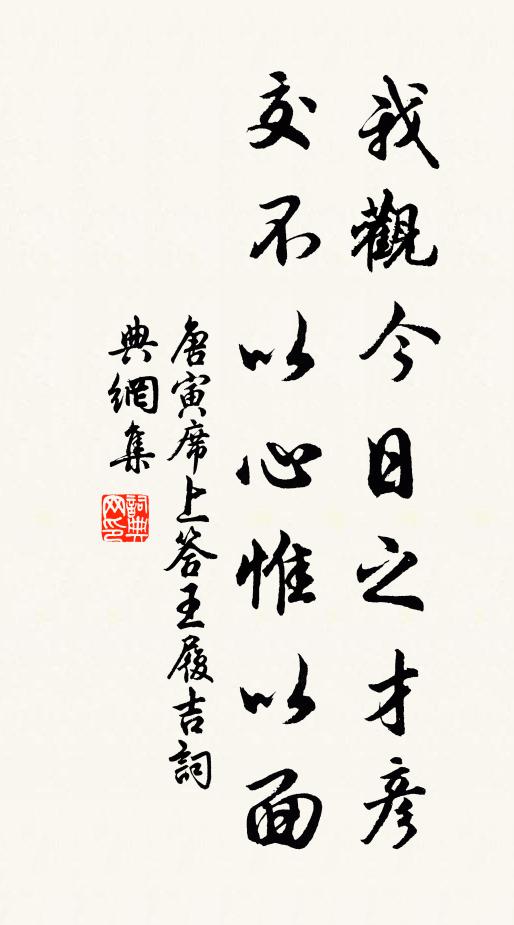 我觀今日之才彥
交不以心惟以面
唐寅席上答王履吉詞
典網集
詞典
网印